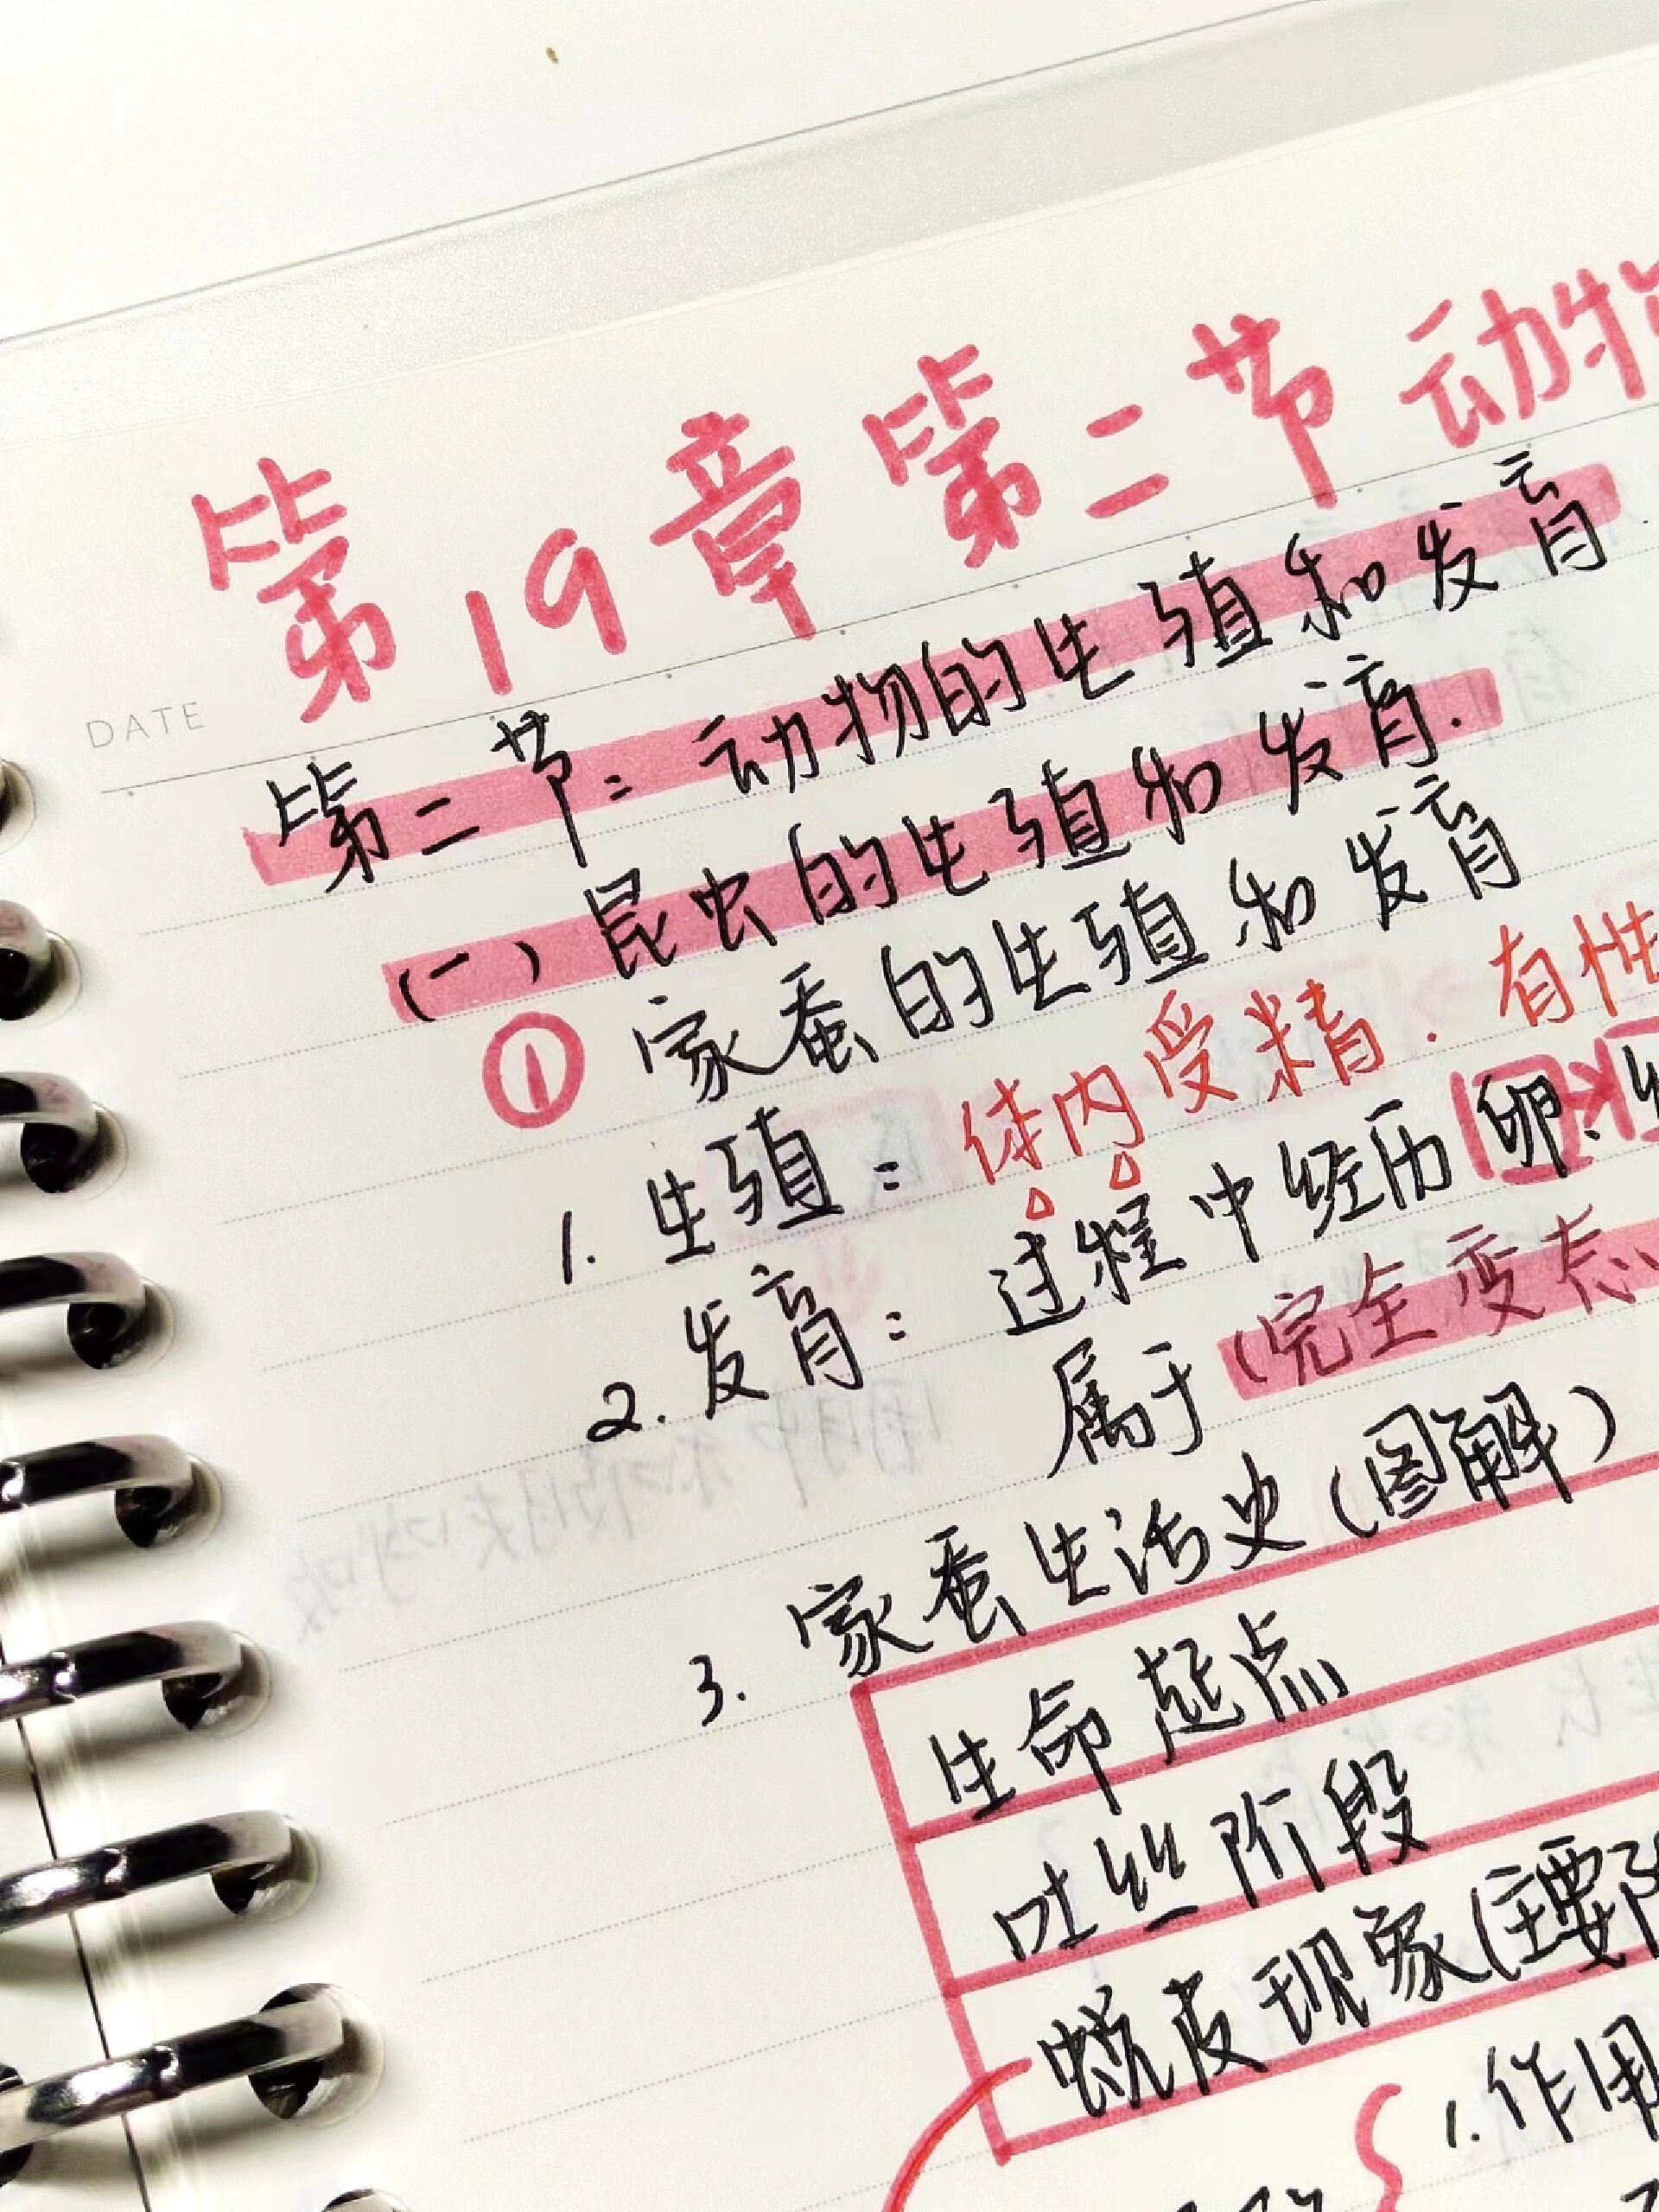 第19章第二节 动物
DATE
第二节：动物的生殖和发育
(一)昆虫的生殖和发育.
① 家蚕的生殖和发育
1. 生殖：体内受精．有性
2. 发育：过程中经历卵、
属于(完全变态
3. 家蚕生活史(图解)
生命起点
吐丝阶段
蜕皮现象(主要
1.作用